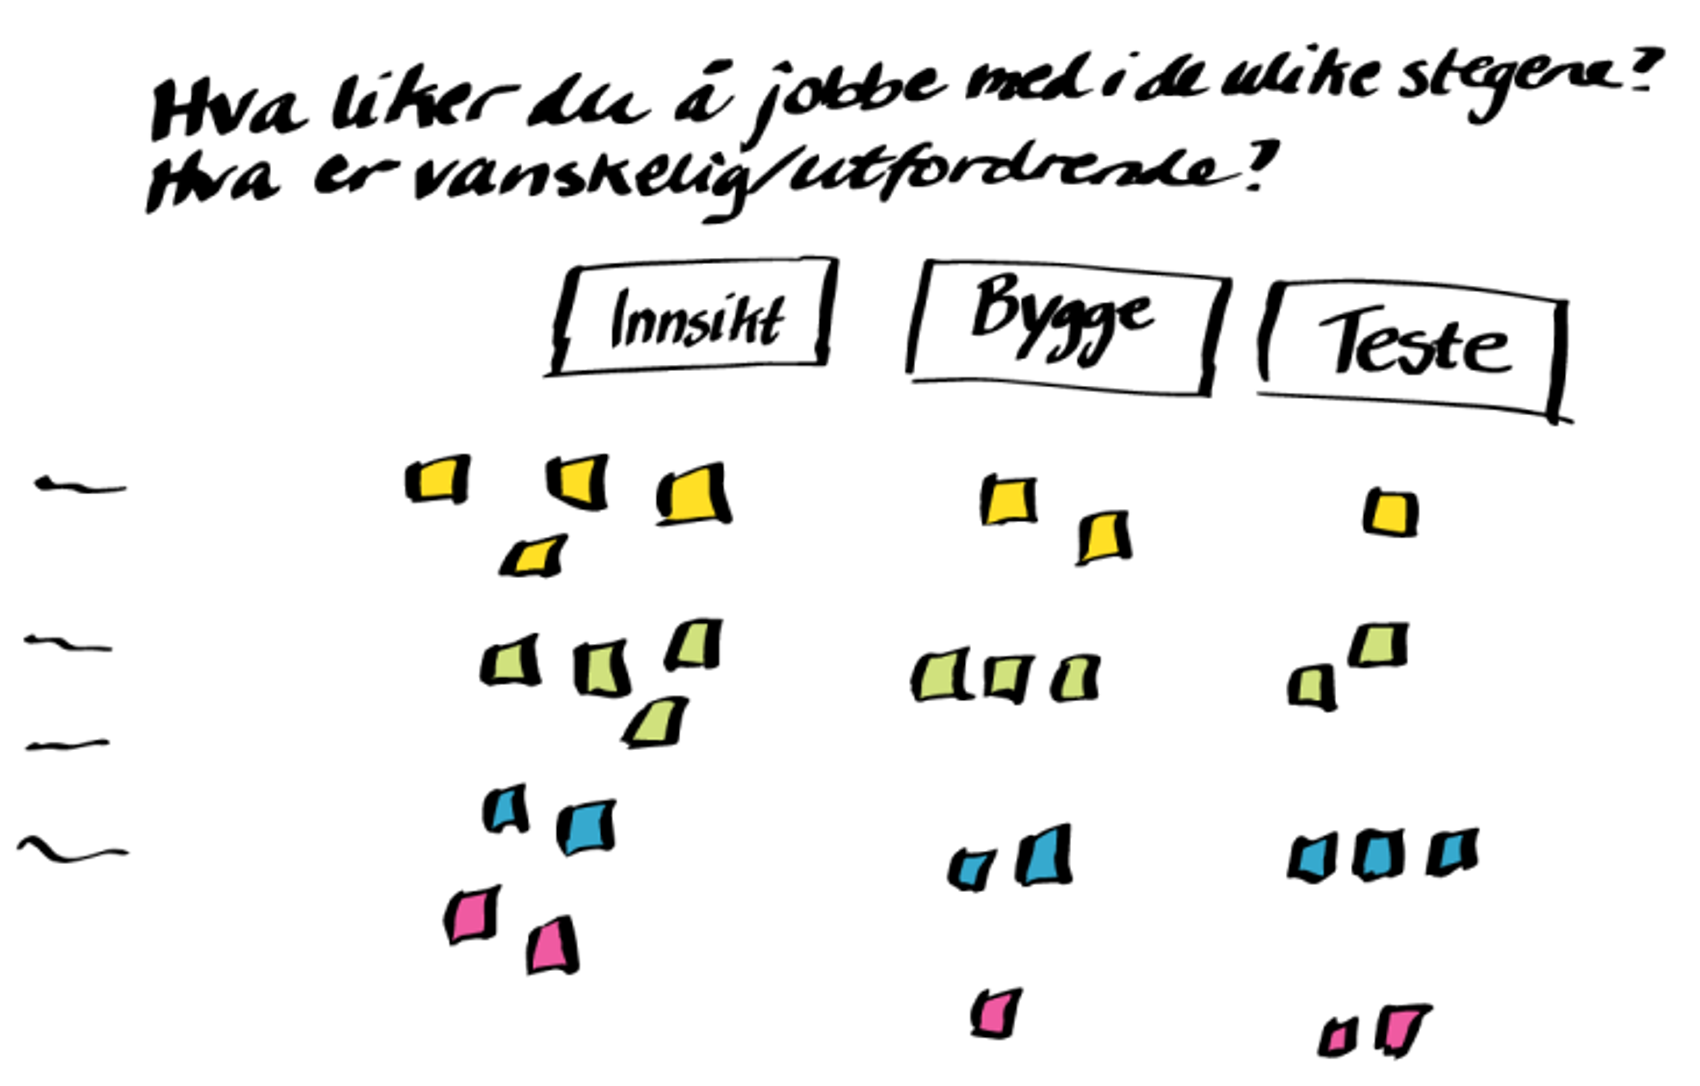 Hva liker du å jobbe med i de ulike stegene?
Hva er vanskelig/utfordrende?
Innsikt
Bygge
Teste